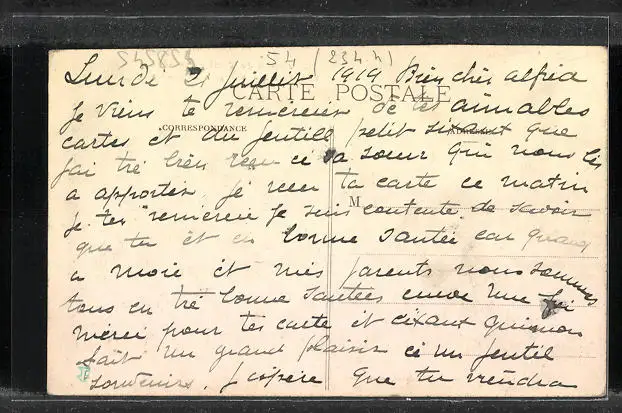 545854 54 (2344)
Lundi 21 juillet 1919 Bien cher alfred
CARTE POSTALE
Je viens te remercier de tes aimables
CORRESPONDANCE
cartes et du jentill petit sixant que
jai tré bien reçu ce sa soeur qui nous les
a apportes je recu ta carte ce matin
M
je ten remercie je suis contente de savoir
que tu et en bonne santée car quand
a moie et mes parents nous sommes
tous en tré bonne santées encor une foi
merci pour tes carte et cixant qui mon
fait un grand plaisir ce un jentil
souvenir. J'espère que tu viendra